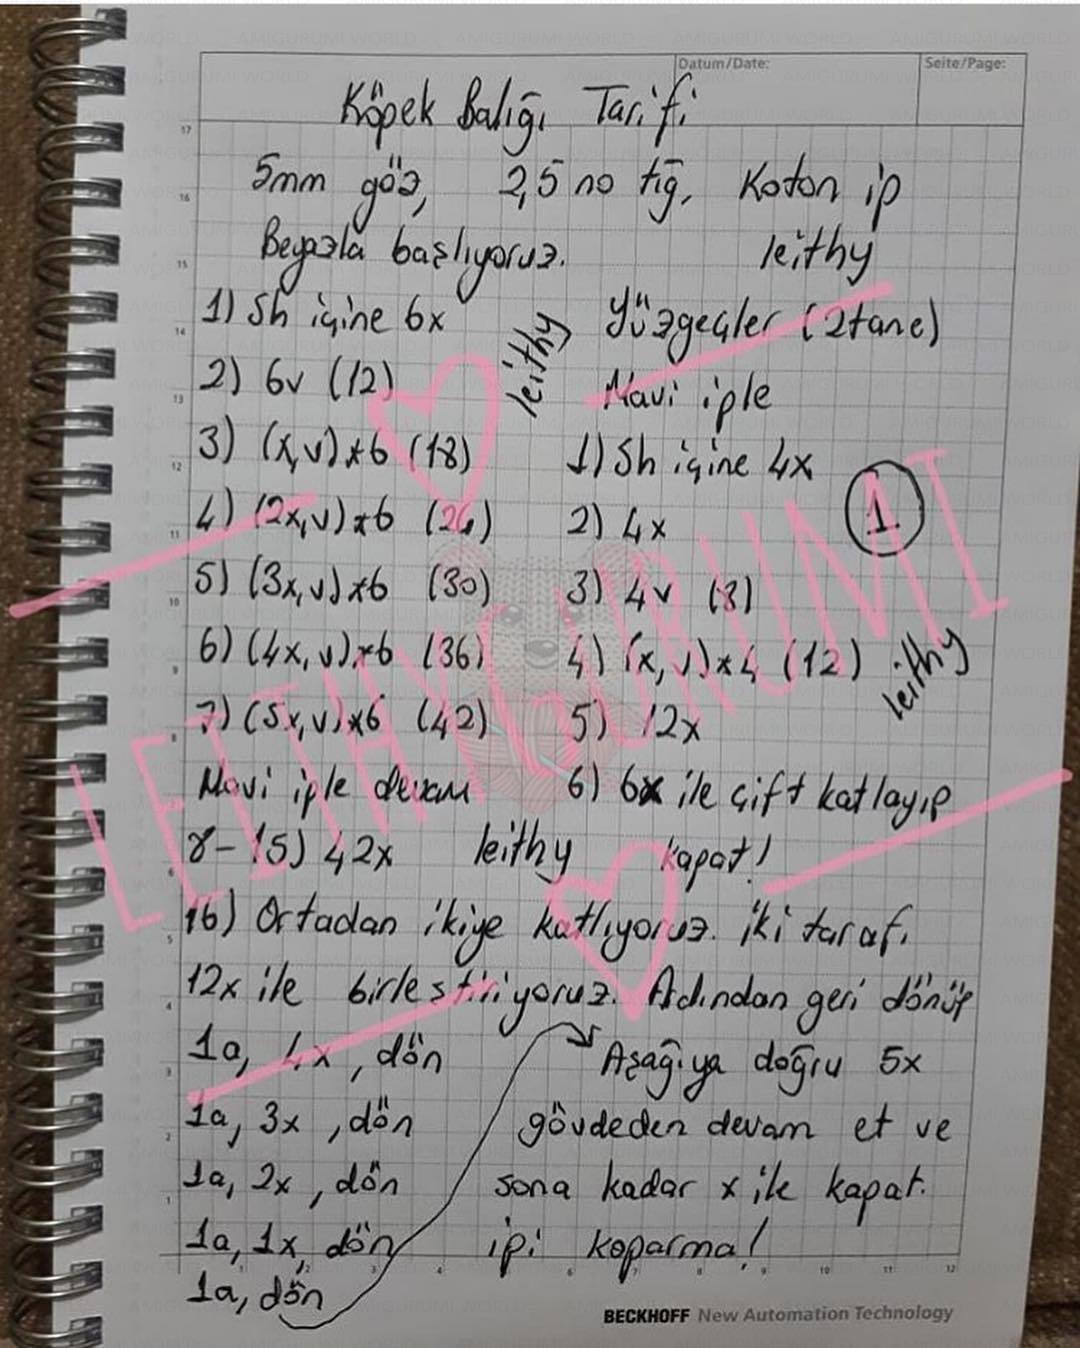 Datum/Date:
Seite/Page:
Köpek Balığı Tarifi
5mm göz, 2,5 no tığ, Koton ip
Beyazla başlıyoruz.
leithy
1) Sh içine 6x
2) 6v (12)
3) (x,v)*6 (18)
4) (2x,v)*6 (24)
5) (3x,v)*6 (30)
6) (4x,v)*6 (36)
7) (5x,v)*6 (42)
Mavi iple devam
8-15) 42x
leithy
leithy
Yüzgeçler (2tane)
Mavi iple
1) Sh içine 4x
2) 4x
3) 4v (8)
4) (x,v)*4 (12)
5) 12x
6) 6x ile çift katlayıp
kapat!
1
leithy
16) Ortadan ikiye katlıyoruz. iki tarafı
12x ile birleştiriyoruz. Adından geri dönüp
1a, 4x, dön
1a, 3x, dön
1a, 2x, dön
1a, 1x, dön
1a, dön
Aşağıya doğru 5x
gövdeden devam et ve
sona kadar x ile kapat.
ipi koparma!
LEITHYGURUMI
BECKHOFF New Automation Technology
17
16
15
14
13
12
11
10
9
8
6
5
4
3
2
1
1 2 3 4 5 6 7 8 9 10 11 12